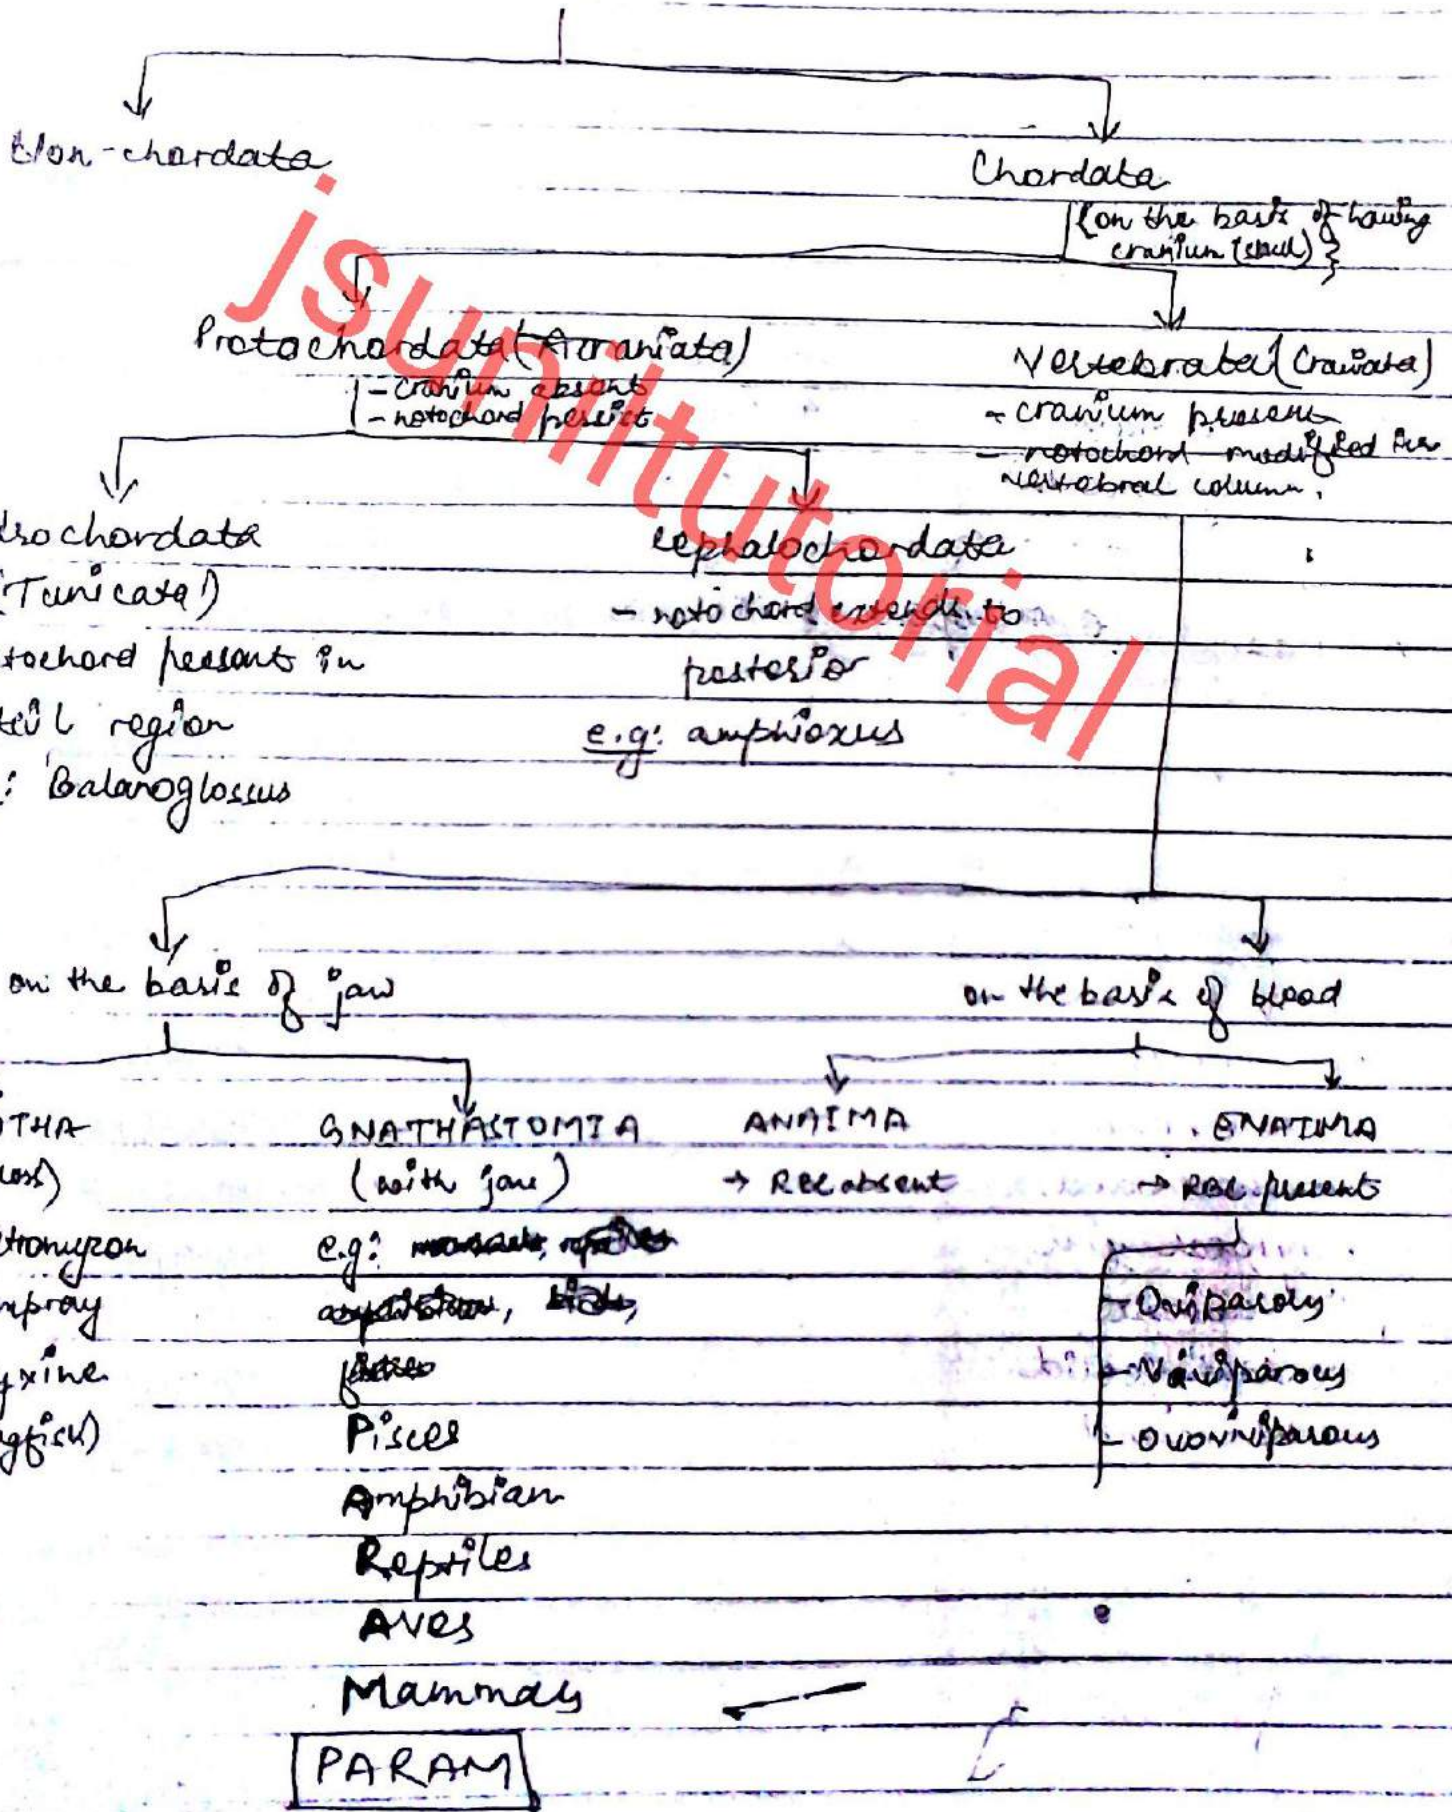 Non-chordata
Chordata
{on the basis of having
cranium (skull)}
Protochordata (Acraniata)
- cranium absent
- notochord persist
Vertebrata (Craniata)
- cranium present
- notochord modified in
vertebral column.
rochordata
(Tunicata)
tochord present in
tail region
: Balanoglossus
Cephalochordata
- notochord extends to
posterior
e.g: amphioxus
on the basis of jaw
on the basis of blood
THA
GNATHASTOMIA
(with jaw)
e.g:
Pisces
Amphibian
Reptiles
Aves
Mammals
PARAM
tromyzon
mpray
yxine
gfish)
ANAIMA
→ RBC absent
ENAIMA
→ RBC present
- Oviparous
- Viviparous
- Ovoviviparous
jsunitutorial